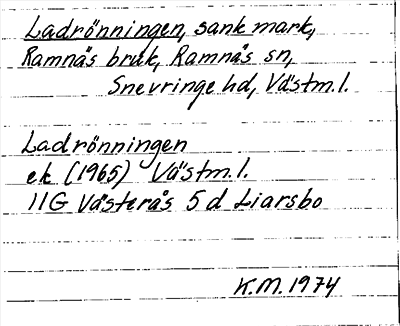 Ladrönningen, sank mark,
Ramnäs bruk, Ramnäs sn,
Snevringe hd, Västm.l.
Ladrönningen
ek. (1965) Västm.l.
11G Västerås 5d Liarsbo
K.M. 1974